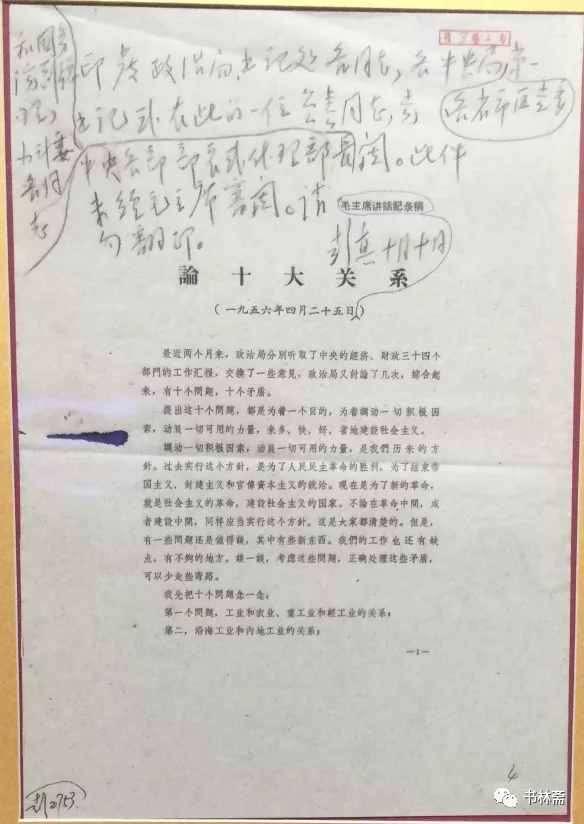 印发政治局、书记处各同志,各中央局第一
书记或在此的一位书记同志,
各省市区党委
中央各部部长或代理部长阅。此件
未经毛主席审阅。请
勿翻印。
彭真 十月十日
毛主席讲话記彔稿
論十大关系
(一九五六年四月二十五日)
最近两个月来,政治局分別听取了中央的經济、財政三十四个
部門的工作汇报,交換了一些意見,政治局又討論了几次,綜合起
来,有十个問題,十个矛盾。
提出这十个問題,都是为着一个目的,为着調动一切积极因
素,动員一切可用的力量,来多、快、好、省地建設社会主义。
調动一切积极因素,动員一切可用的力量,是我們历来的方
針。过去实行这个方針,是为了人民民主革命的胜利,为了結束帝
国主义、封建主义和官僚資本主义的統治。現在是为了新的革命,
就是社会主义的革命,建設社会主义的国家。不論在革命中間,或
者建設中間,同样应当实行这个方針。这是大家都清楚的。但是,
有一些問題还是值得談,其中有些新东西。我們的工作也还有缺
点,有不夠的地方。談一談,考虑这些問題,正确处理这些矛盾,
可以少走些弯路。
我先把十个問題念一念:
第一个問題,工业和农业、重工业和輕工业的关系;
第二,沿海工业和內地工业的关系;
—1—
4
彭2753
书林斋